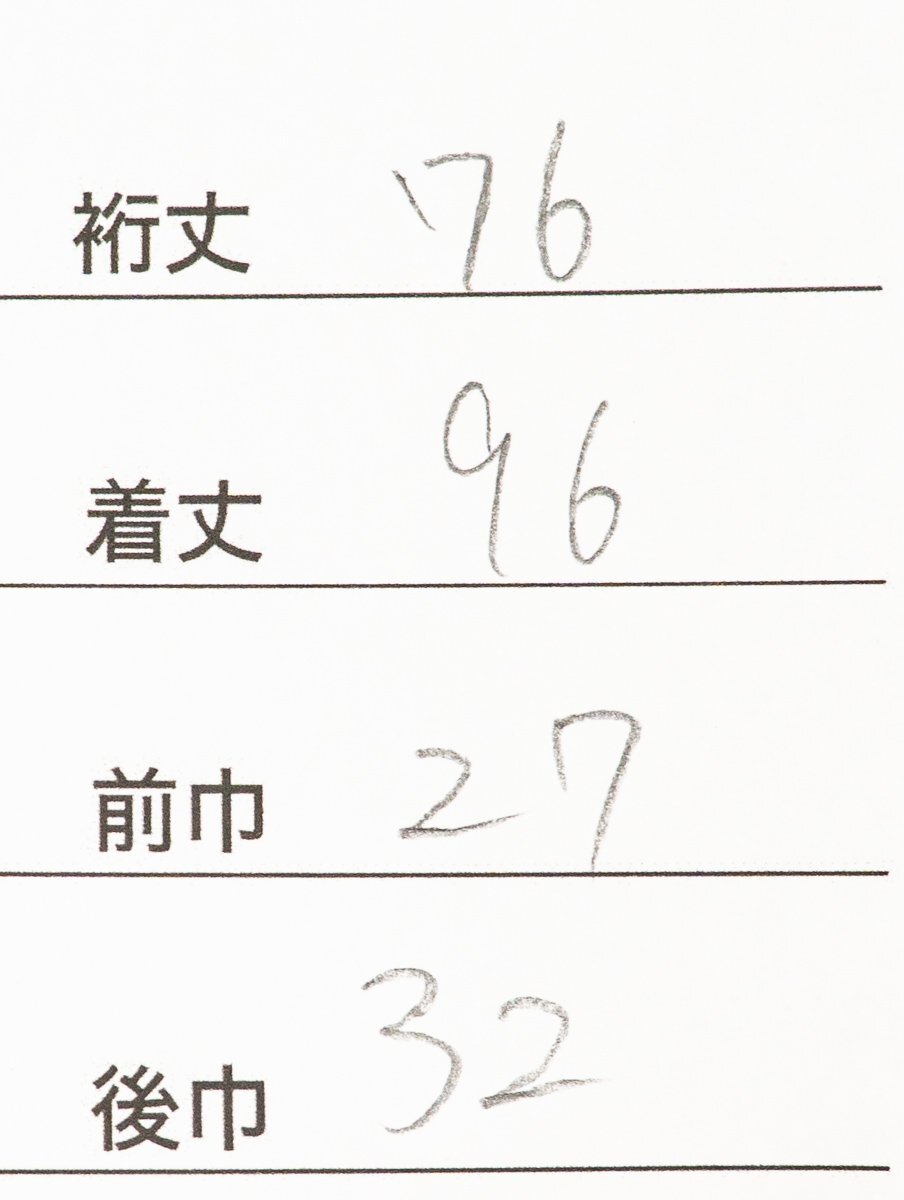 裄丈 76
着丈 96
前巾 27
後巾 32